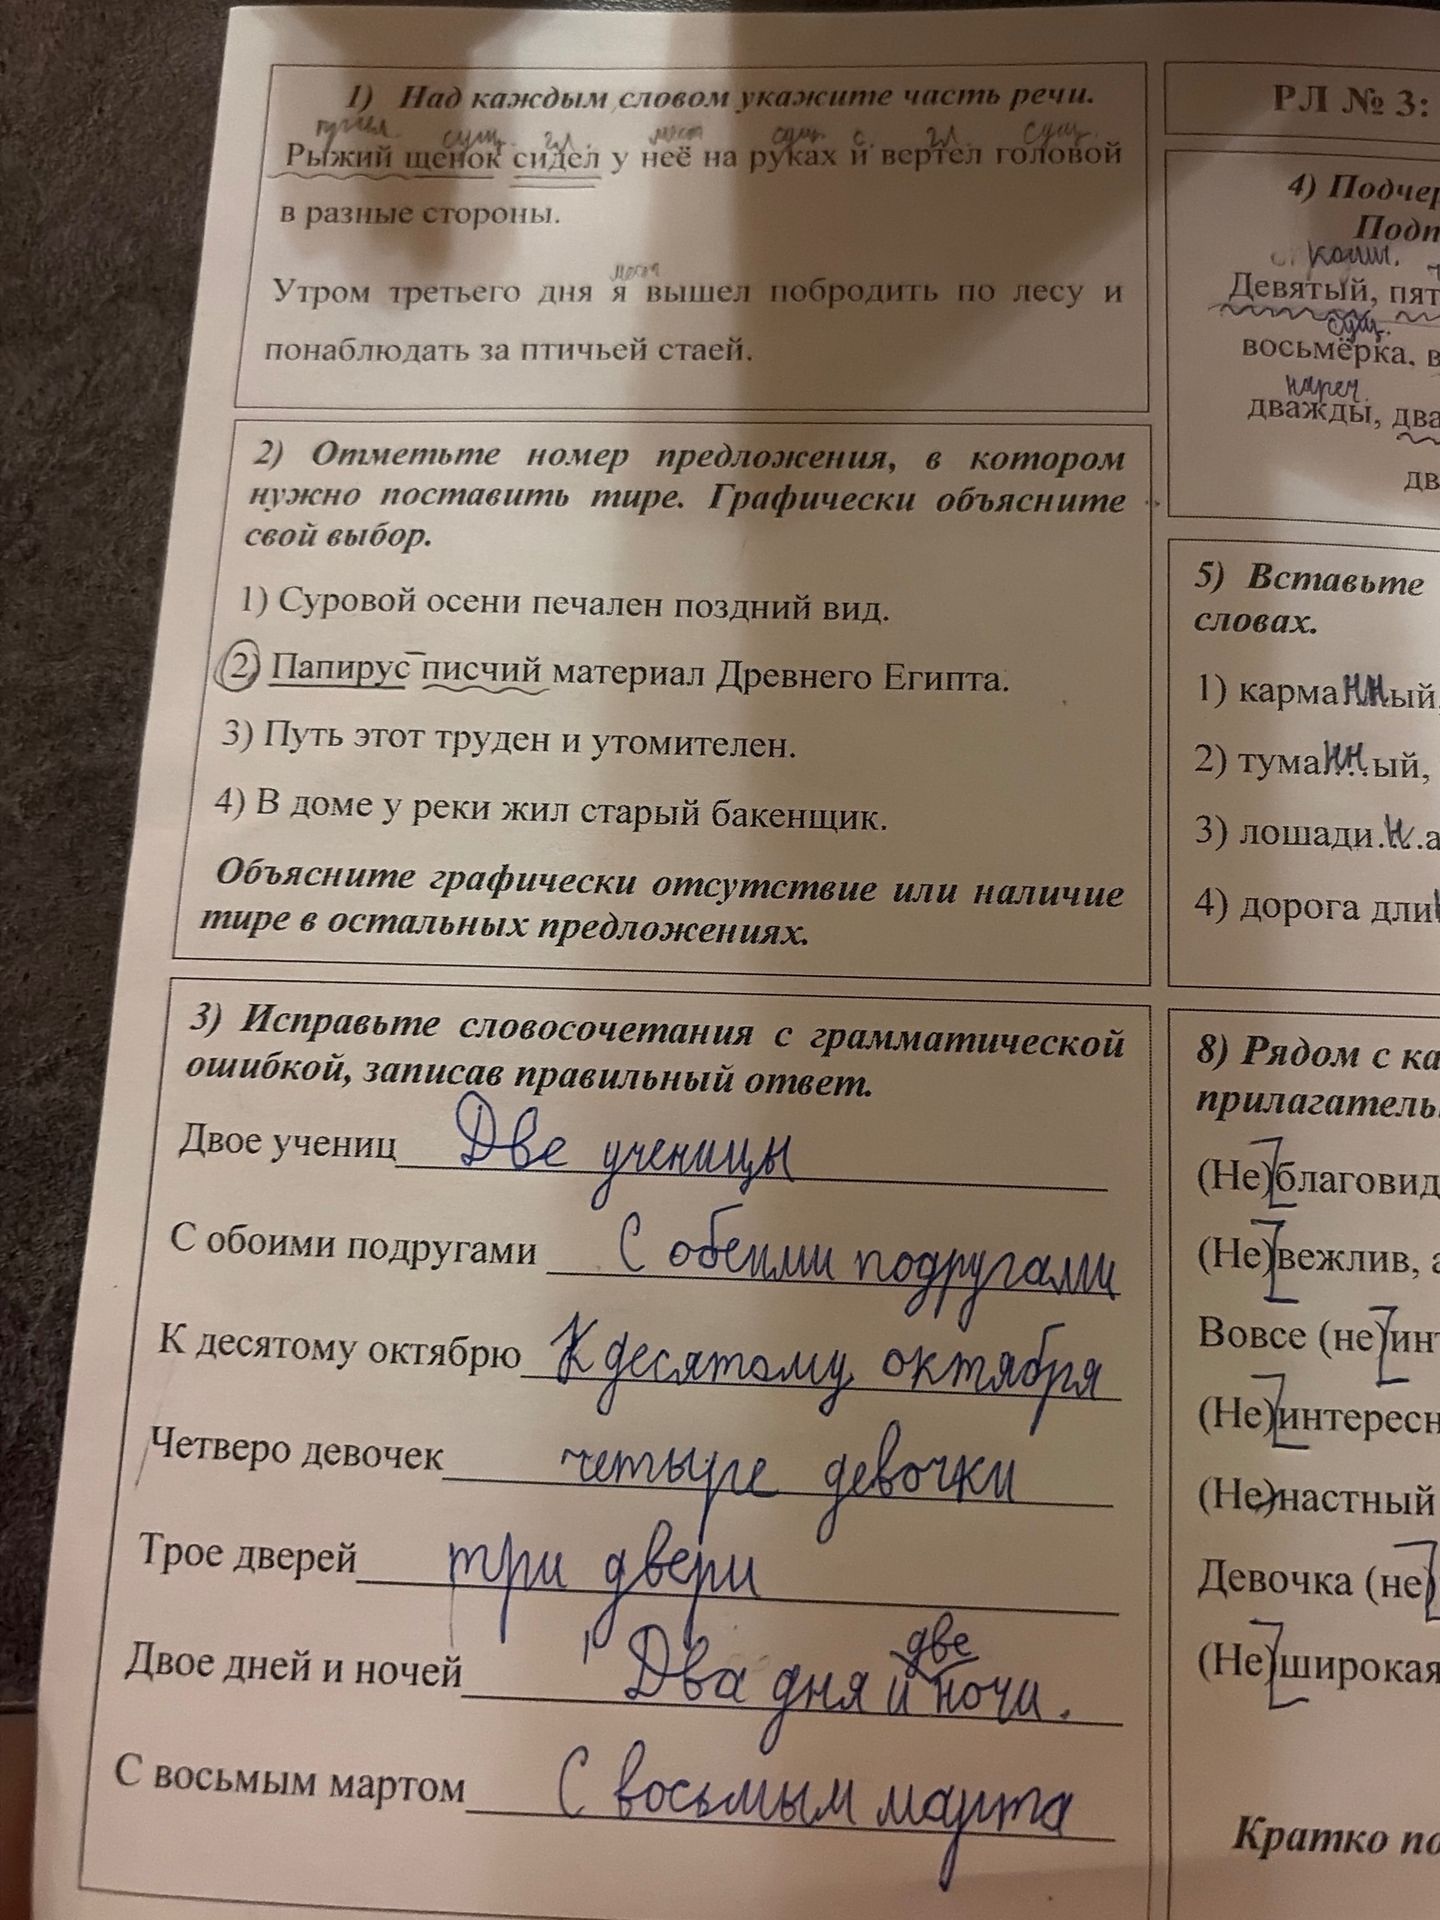 1) Над каждым словом укажите часть речи.
сущ. гл. мест сущ. с. гл. сущ.
Рыжий щенок сидел у неё на руках и вертел головой
в разные стороны.
мест
Утром третьего дня я вышел побродить по лесу и
понаблюдать за птичьей стаей.
2) Отметьте номер предложения, в котором
нужно поставить тире. Графически объясните
свой выбор.
1) Суровой осени печален поздний вид.
2) Папирус – писчий материал Древнего Египта.
3) Путь этот труден и утомителен.
4) В доме у реки жил старый бакенщик.
Объясните графически отсутствие или наличие
тире в остальных предложениях.
3) Исправьте словосочетания с грамматической
ошибкой, записав правильный ответ.
Двое учениц Две ученицы
С обоими подругами С обеими подругами
К десятому октябрю К десятому октября
Четверо девочек четыре девочки
Трое дверей три двери
две
Двое дней и ночей Два дня и ночи.
С восьмым мартом С восьмым марта
РЛ № 3:
4) Подчер
Подп
Девятый, пят
сущ.
восьмёрка, в
нареч.
дважды, два
дв
5) Вставьте
словах.
1) карманный,
2) туманный,
3) лошади.н.а
4) дорога дли
8) Рядом с ка
прилагатель
(Не)благовид
(Не)вежлив, а
Вовсе (не)инт
(Не)интересн
(Не)настный
Девочка (не)
(Не)широкая
Кратко по